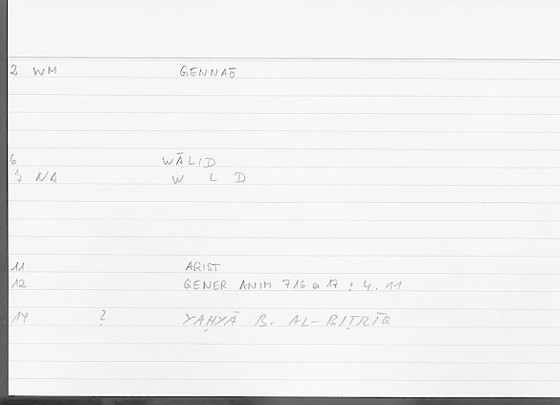 2 WM GENNAŌ
6 WĀLID
7 NA W L D
11 ARIST
12 GENER ANIM 716 a 17 : 4.11
14 ? YAḤYĀ B. AL-BIṬRĪQ